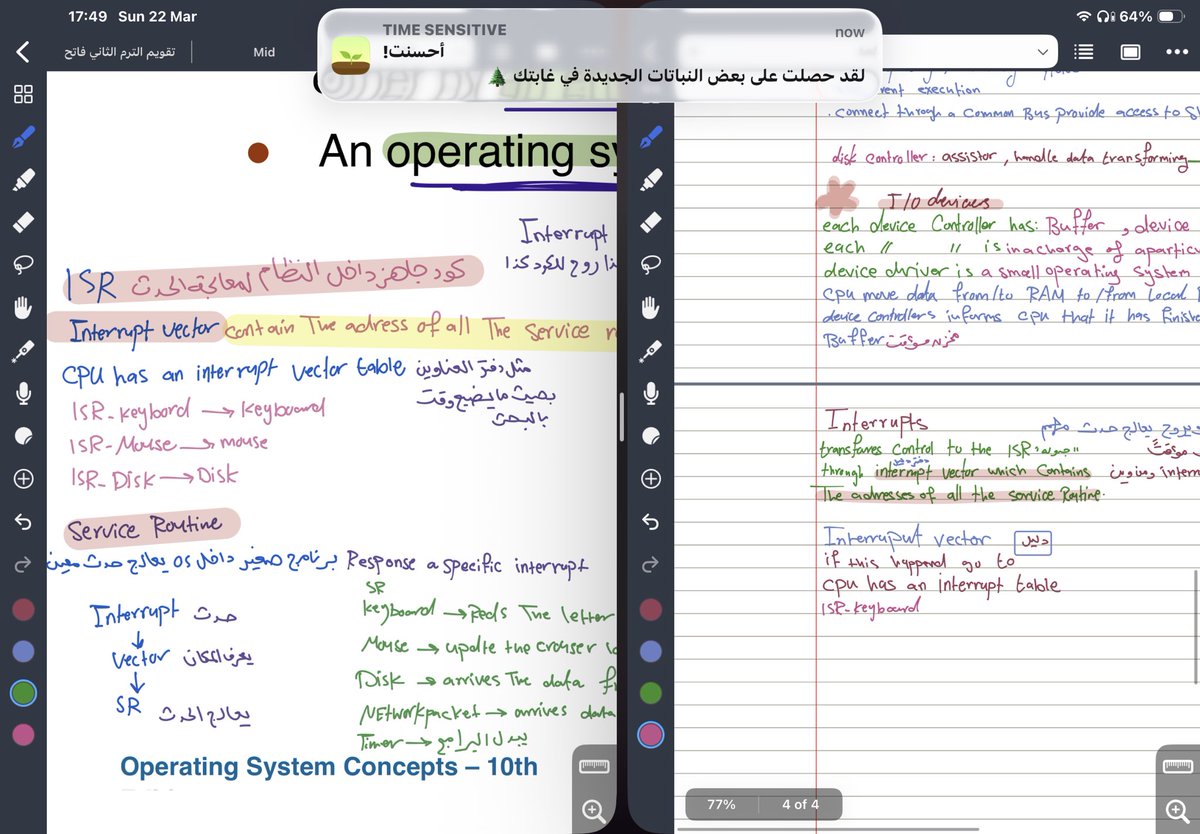 17:49 Sun 22 Mar
64%
TIME SENSITIVE
now
أحسنت!
لقد حصلت على بعض النباتات الجديدة في غابتك 🌲
تقويم الترم الثاني فاتح
Mid
An operating sy
Interrupt
ذا روح للكود كذا
ISR كود جاهز داخل النظام لمعالجة الحدث
Interrupt vector contain The adress of all The Service r
CPU has an interrupt vector table مثل دفتر العناوين
بحيث ما يضيع وقت
بالبحث
ISR-keybord → Keyboard
ISR-Mouse → mouse
ISR-Disk → Disk
Service Routine
برنامج صغير داخل os يعالج حدث معين Response a specific interrupt
SR
Interrupt حدث
↓
Vector يعرف المكان
↓
SR يعالج الحدث
Keyboard → Reds The letter
Mouse → updte the crouser lo
Disk → arrives The data f
NEtwork packet → arrives data
Timer → يبدل البرامج
Operating System Concepts – 10th
rent execution
. connect through a Common Bus provide access to S
disk controller : assistor , handle data transforming
I/O devices
each device Controller has: Buffer , device
each // // is inacharge of aparticu
device driver is a small operating system
CPU move data from/to RAM to/from Local
device controllers informs CPU that it has finishe
Buffer مخزن مؤقت
Interrupts
يروح يعالج حدث مهم
transfares control to the ISR
مؤقتً
دفتر
through interrupt vector which Contains
The adresses of all the service Routine.
Interruput vector دليل
if this happend go to
CPU has an interrupt table
ISR-keyboard
77%
4 of 4